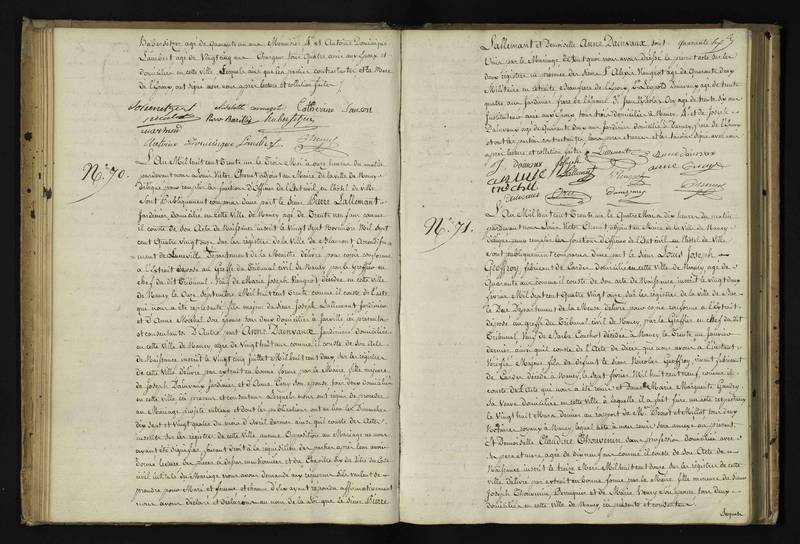 Habersitzer agé de quarante un ans Menuisier, 4° et Antoine Dominique
Lambert agé de Vingt cinq ans Berger tous quatre amis aux Epoux et
domiciliés en cette ville, lesquels ainsi que les parties contractantes et la Mere
de l'Epoux ont signé avec nous après lecture et collation faites
Catherine Sanson
Pierre Barillié Habersitzer
Antoine Dominique Lambert
N°. 70.
L'An Mil huit cent Trente un le Trois Mai à onze heures du matin
pardevant nous Victor Chenut adjoint au Maire de la ville de Nancy
délégué pour remplir les fonctions d'Officier de l'Etat civil, en l'hôtel de ville
Sont Publiquement comparus d'une part le Sieur Pierre Lallemant
Jardinier domicilié en cette Ville de Nancy agé de Trente neuf ans comme
il conste de son Acte de Naissance inscrit le Vingt sept Novembre Mil sept
cent Quatre Vingt onze sur les registres de la Ville de Blamont Arrondisse-
ment de Luneville Département de la Meurthe délivré pour copie conforme
à l'Extrait déposé au Greffe du Tribunal civil de Nancy par le Greffier en
chef du dit Tribunal Veuf de Marie Joseph Vengeot décédée en cette ville
de Nancy le Onze Septembre Mil huit cent Trente comme il conste de l'acte
qui nous a été représenté fils majeur de Joseph Lallemant Jardinier
et d'Anne Michel son épouse tous deux domiciliés à Jarville ici présents
et consentants D'Autre part Anne Dainvaux Jardinière domiciliée
en cette Ville de Nancy agée de Vingt huit ans comme il conste de son Acte
de Naissance inscrit le Vingt cinq Juillet Mil huit cent deux sur les registres
de cette Ville délivré par extrait en bonne forme par la Mairie fille majeure
de Joseph Dainvaux Jardinier et d'Anne Cuny son épouse tous deux domiciliés
en cette ville ici présents et consentans Lesquels nous ont requis de procéder
au Mariage projetté entr'eux et dont les publications ont eu lieu les Dimanches
dix sept et Vingt quatre du mois d'Avril dernier ainsi qu'il conste des Actes
inscrits sur les registres de cette Ville aucune Opposition au Mariage ne nous
ayant été signifiée, faisant droit à la réquisition des parties après leur avoir
donné lecture des pièces ci dessus mentionnées et du Chapitre Six du titre du Code
civil intitulé du Mariage nous avons demandé aux requérans s'ils veulent se
prendre pour Mari et femme et chacun d'eux ayant répondu affirmativement
nous avons déclaré et déclarons au nom de la Loi que le Sieur Pierre
Quarante Sept
Lallemant et Demoiselle Anne Dainvaux sont
Unis par le Mariage. De tout quoi nous avons dressé le présent acte sur les
deux registres en presence des Sieurs 1° Alexis Vengeot agé de Quarante deux
Militaire en retraite beaufrère de l'Epoux, 2° Léopold Dainvaux agé de trente
quatre ans Jardinier frère de l'Epouse 3° Jean Nicolas agé de trente six ans
Instituteur ami aux Epoux tous trois domiciliés à Nancy 4° et de Joseph
Dainvaux agé de Quarante deux ans Jardinier domicilié à Nancy, frère de l'Epouse
après lecture et collation faites
J Dainvaux
Joseph Lallemant
P Lallemant
Anne Dainvaux
anne Cuny
anne michel
Vengeot
Dainvaux
Chenut
N°. 71.
L'An Mil huit cent Trente un le Quatre Mai à dix heures du matin
pardevant nous Victor Chenut adjoint au Maire de la Ville de Nancy
délégué pour remplir les fonctions d'Officier de l'Etat civil en l'hôtel de Ville
sont publiquement comparus d'une part le Sieur Louis Joseph
Geoffroy, fabricant de Cardes Domicilié en cette Ville de Nancy agé de
Quarante ans comme il conste de son acte de Naissance inscrit le vingt deux
février Mil Sept cent Quatre Vingt onze sur les registres de la Ville de Bar-
le Duc Département de la Meuse délivré pour copie conforme à l'Extrait
déposé au greffe du Tribunal civil de Nancy, par le Greffier en chef du dit
Tribunal, Veuf de Barbe Louchot décédée à Nancy, le Trente un Janvier
dernier ainsi qu'il conste de l'Acte de décès que nous avons à l'instant
Vérifié Majeur fils de défunt le Sieur Nicolas Geoffroy, vivant fabricant
de Cardes décédé à Nancy, le sept février Mil huit cent neuf comme il
conste de l'acte qui nous a été remis et Dame Marie Marguerite Gaudry
Sa Veuve domiciliée en cette Ville à laquelle il a fait faire un acte respectueux
le Vingt huit Mars dernier au rapport de M° Droit et Millot tous deux
Notaires royaux à Nancy, lequel acte à nous remis sera annexé au présent.
Et Demoiselle Claudine Thouvenin sans profession domiciliée avec
ses père et mère agée de dix neuf ans comme il conste de son Acte de
Naissance inscrit le treize Mars Mil huit cent douze sur les registres de cette
ville délivré par extrait en bonne forme par la Mairie fille mineure du Sieur
Joseph Thouvenin Perruquier et de Marie Henry son épouse tous deux
domiciliés en cette ville de Nancy, ici présents et consentans
Lesquels